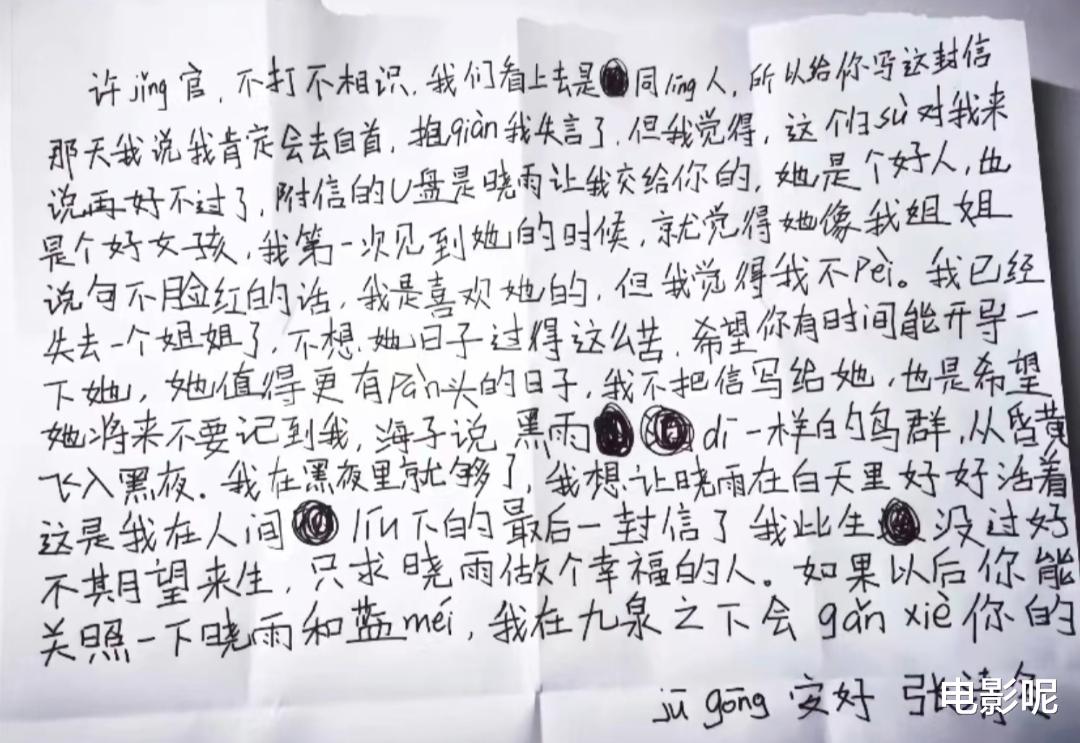 许jǐng官，不打不相识，我们看上去是同líng人，所以给你写这封信
那天我说我肯定会去自首，抱qiàn我失言了，但我觉得，这个归sù对我来
说再好不过了，附信的U盘是晓雨让我交给你的，她是个好人，也
是个好女孩，我第一次见到她的时候，就觉得她像我姐姐
说句不脸红的话，我是喜欢她的，但我觉得我不Pèi。我已经
失去一个姐姐了，不想她日子过得这么苦，希望你有时间能开导一
下她，她值得更有Pàn头的日子，我不把信写给她，也是希望
她将来不要记到我，海子说黑雨dī一样的鸟群，从昏黄
飞入黑夜。我在黑夜里就够了，我想让晓雨在白天里好好活着
这是我在人间liú下的最后一封信了我此生没过好
不期望来生，只求晓雨做个幸福的人。如果以后你能
关照一下晓雨和蓝méi，我在九泉之下会gǎn xiè你的
jū gōng 安好 张
电影呢